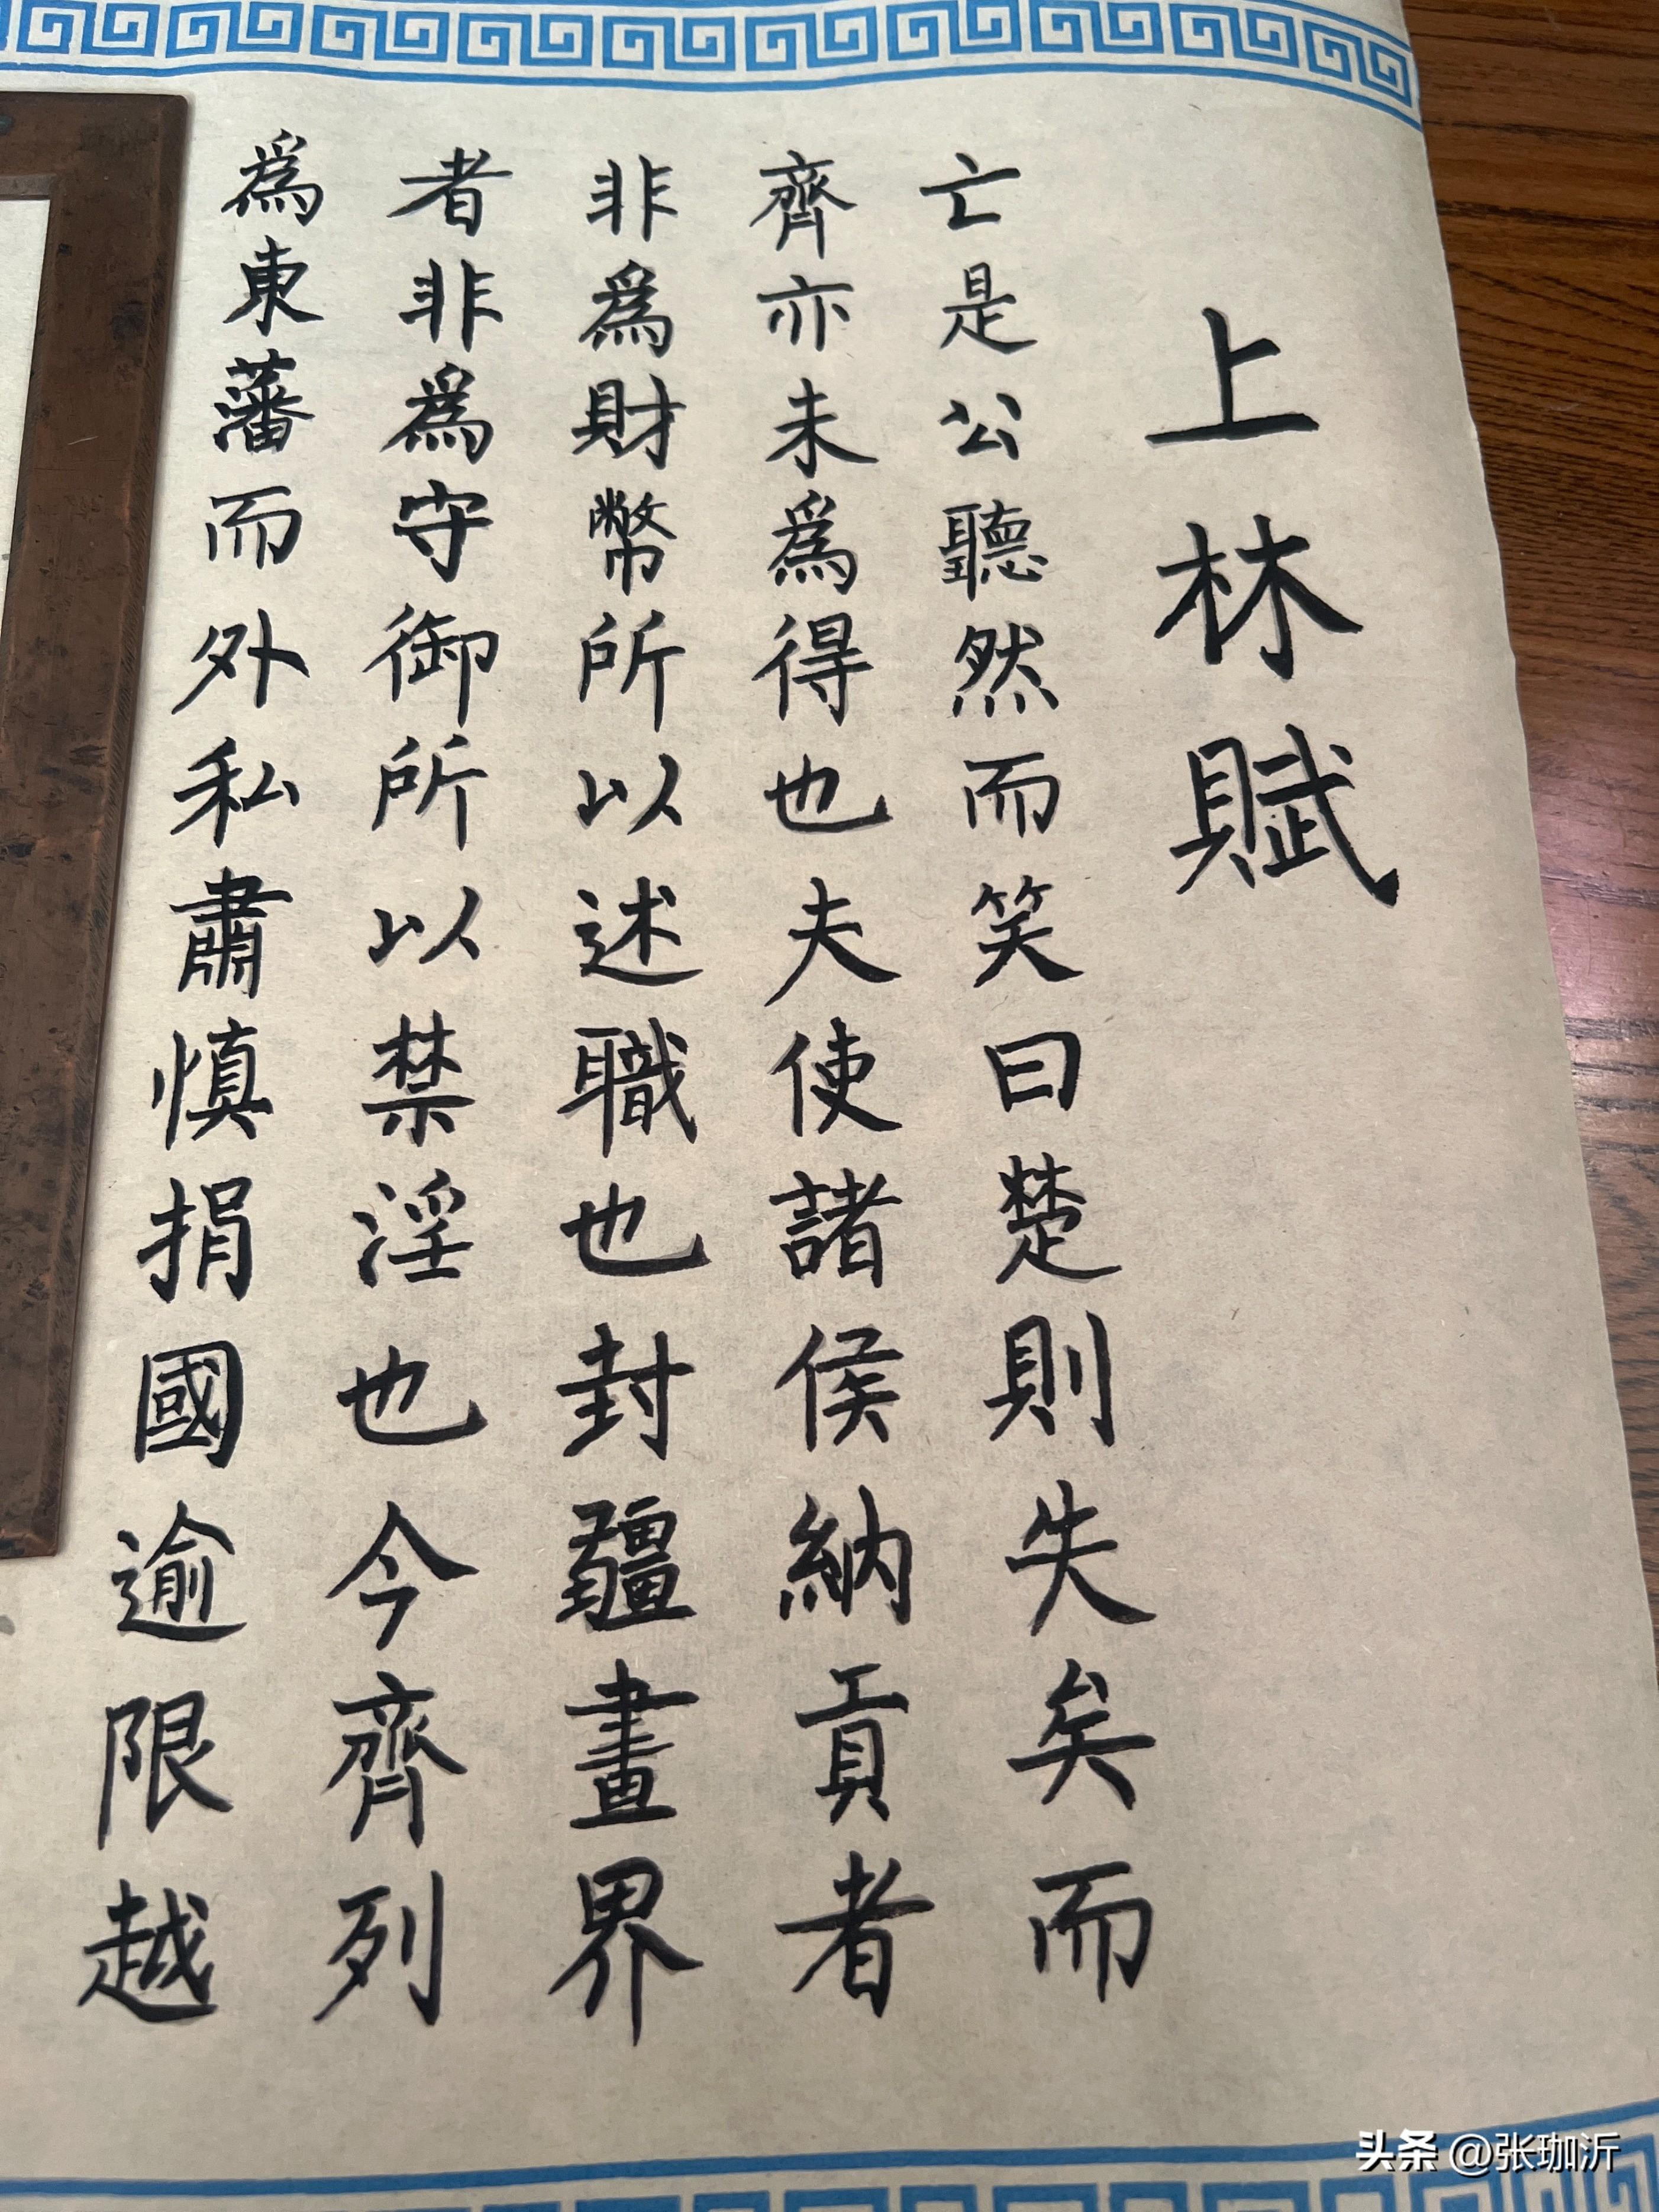 上林賦
亡是公聽然而笑曰楚則失矣而
齊亦未爲得也夫使諸侯納貢者
非爲財幣所以述職也封疆畫界
者非爲守御所以禁淫也今齊列
爲東藩而外私肅慎捐國逾限越
头条 @张珈沂